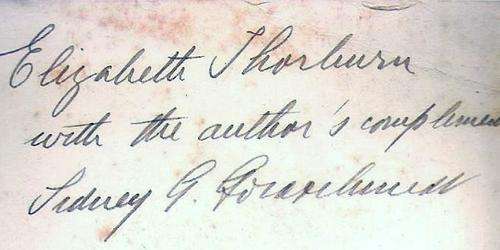 Elizabeth Thorburn
with the author's complimen
Sidney G. Goldschmidt